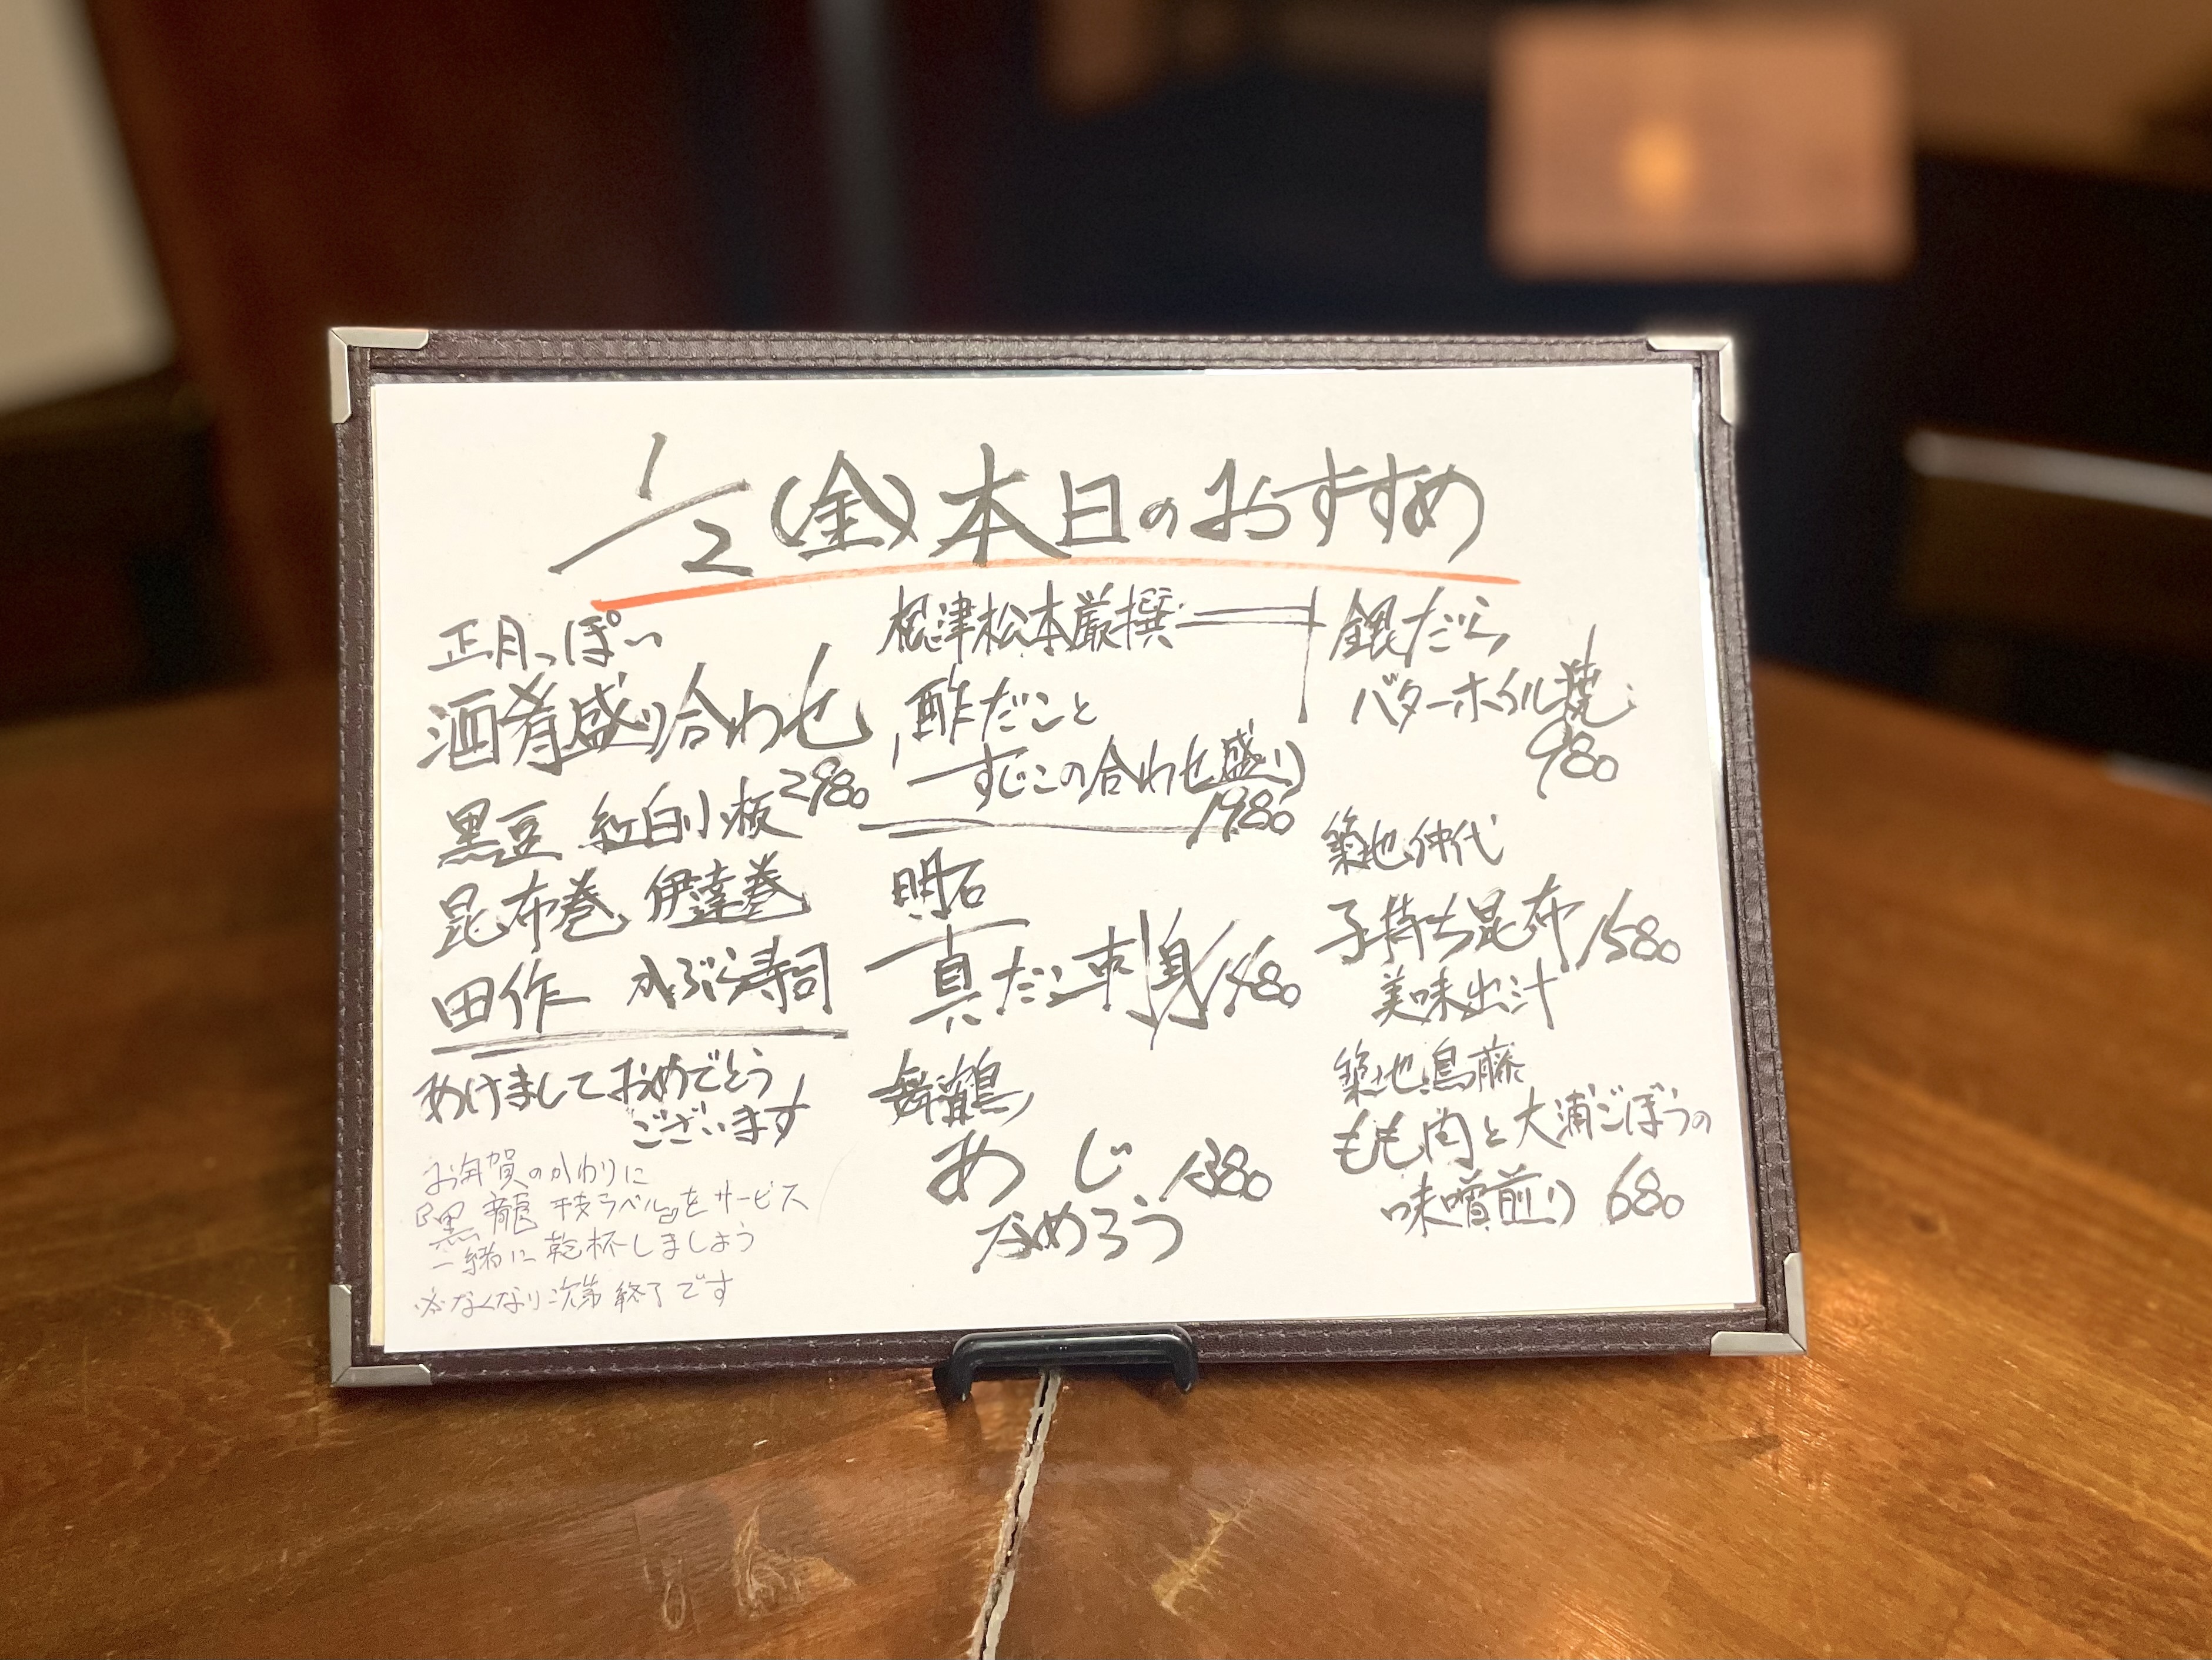 1/2(金)本日のおすすめ
正月っぽい
酒肴盛り合わせ
2980
黒豆 紅白小板
昆布巻 伊達巻
田作 かぶら寿司
あけましておめでとう
ございます
お年賀のかわりに
『黒龍 干支ラベル』をサービス
一緒に乾杯しましょう
※なくなり次第終了です
根津松本厳撰
酢だこと
すじこの合わせ盛り
1980
明石
真だこ刺身 1480
舞鶴
あじ 1380
なめろう
銀だら
バターホイル焼
980
築地仲代
子持ち昆布 1580
美味出汁
築地鳥藤
もも肉と大浦ごぼうの
味噌煎り 680